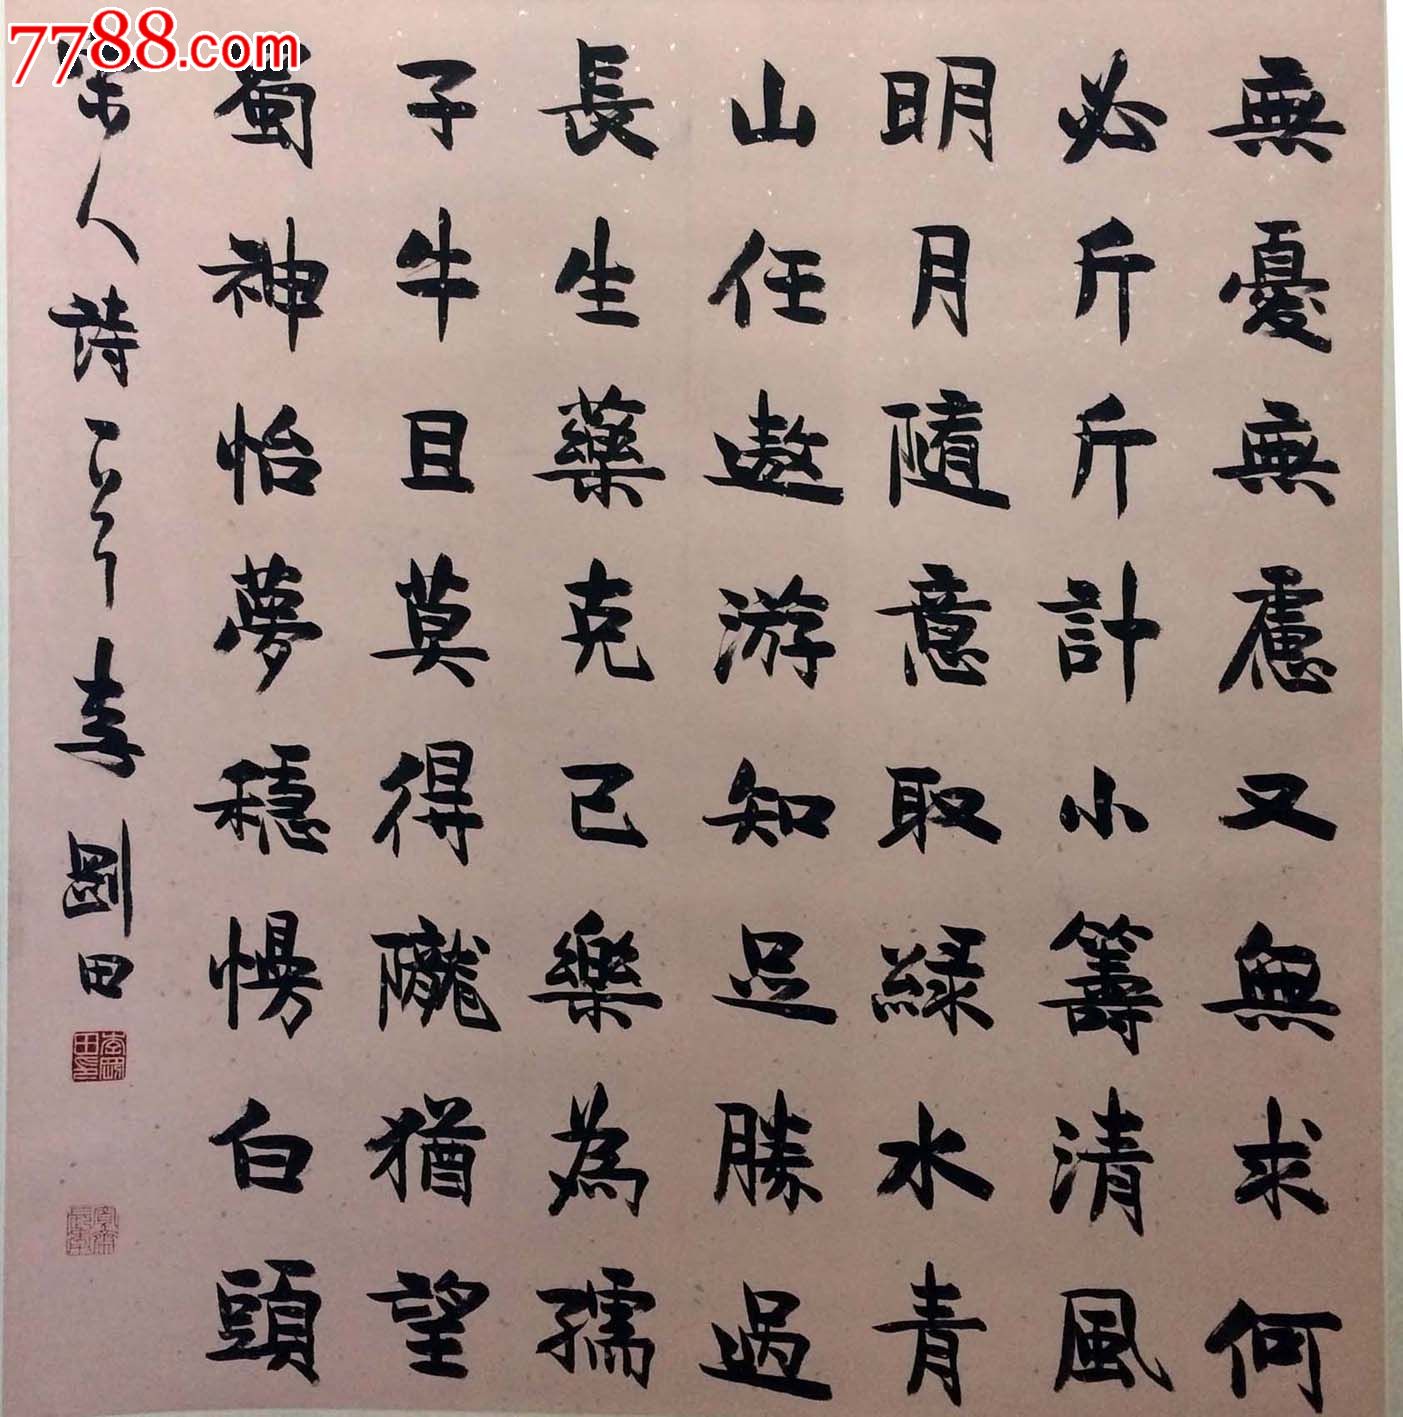 7788.com
無憂無慮又無求何
必斤斤計小籌清風
明月隨意取綠水青
山任遨游知足勝過
長生藥克己樂為孺
子牛且莫得隴猶望
蜀神怡夢穩慢白頭
宋人詩一首 李剛田